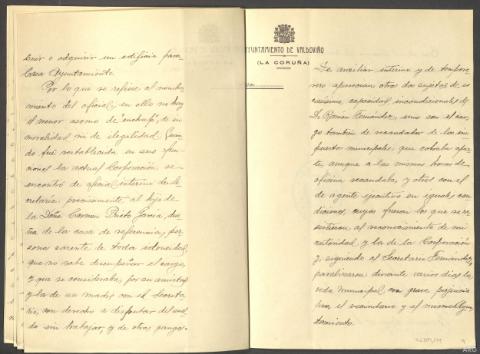 truir o adquirir un edificio para
Casa Ayuntamiento.
Por lo que se refiere al nombra-
miento del oficial, en ello no hay
el menor asomo de "enchufe", de in-
moralidad ni de ilegalidad. Cuan-
do fué restablecida en sus fun-
ciones la actual Corporación, se
encontró de oficial interino de Se-
cretaría precisamente al hijo de
la Doña Carmen Prieto García, due-
ña de la casa de referencia, per-
sona carente de toda idoneidad,
que no sabe desempeñar el cargo,
y que se consideraba, por su amistad
y la de su madre con el Secreta-
rio, con derecho a disfrutar del suel-
do sin trabajar, y de otras gangas.
AYUNTAMIENTO DE VALDOVIÑO
(LA CORUÑA)
De auxiliar interino y de tempore-
ro aparecieron otros dos sujetos de es-
casísima capacidad, incondicionales de
D. Román Fernández, uno con el cargo
también de recaudador de los im-
puestos municipales, que cobraba apar-
te, aunque a las mismas horas de
oficina recaudaba, y otro con el
de agente ejecutivo en iguales con-
diciones, cuyos fueron los que se re-
sistieron al reconocimiento de mi
autoridad y la de la Corporación
y, siguiendo al Secretario Fernández,
paralizaron durante varios días la
vida municipal, con grave perjuicio
para el vecindario y el mismo Ayun-
tamiento.